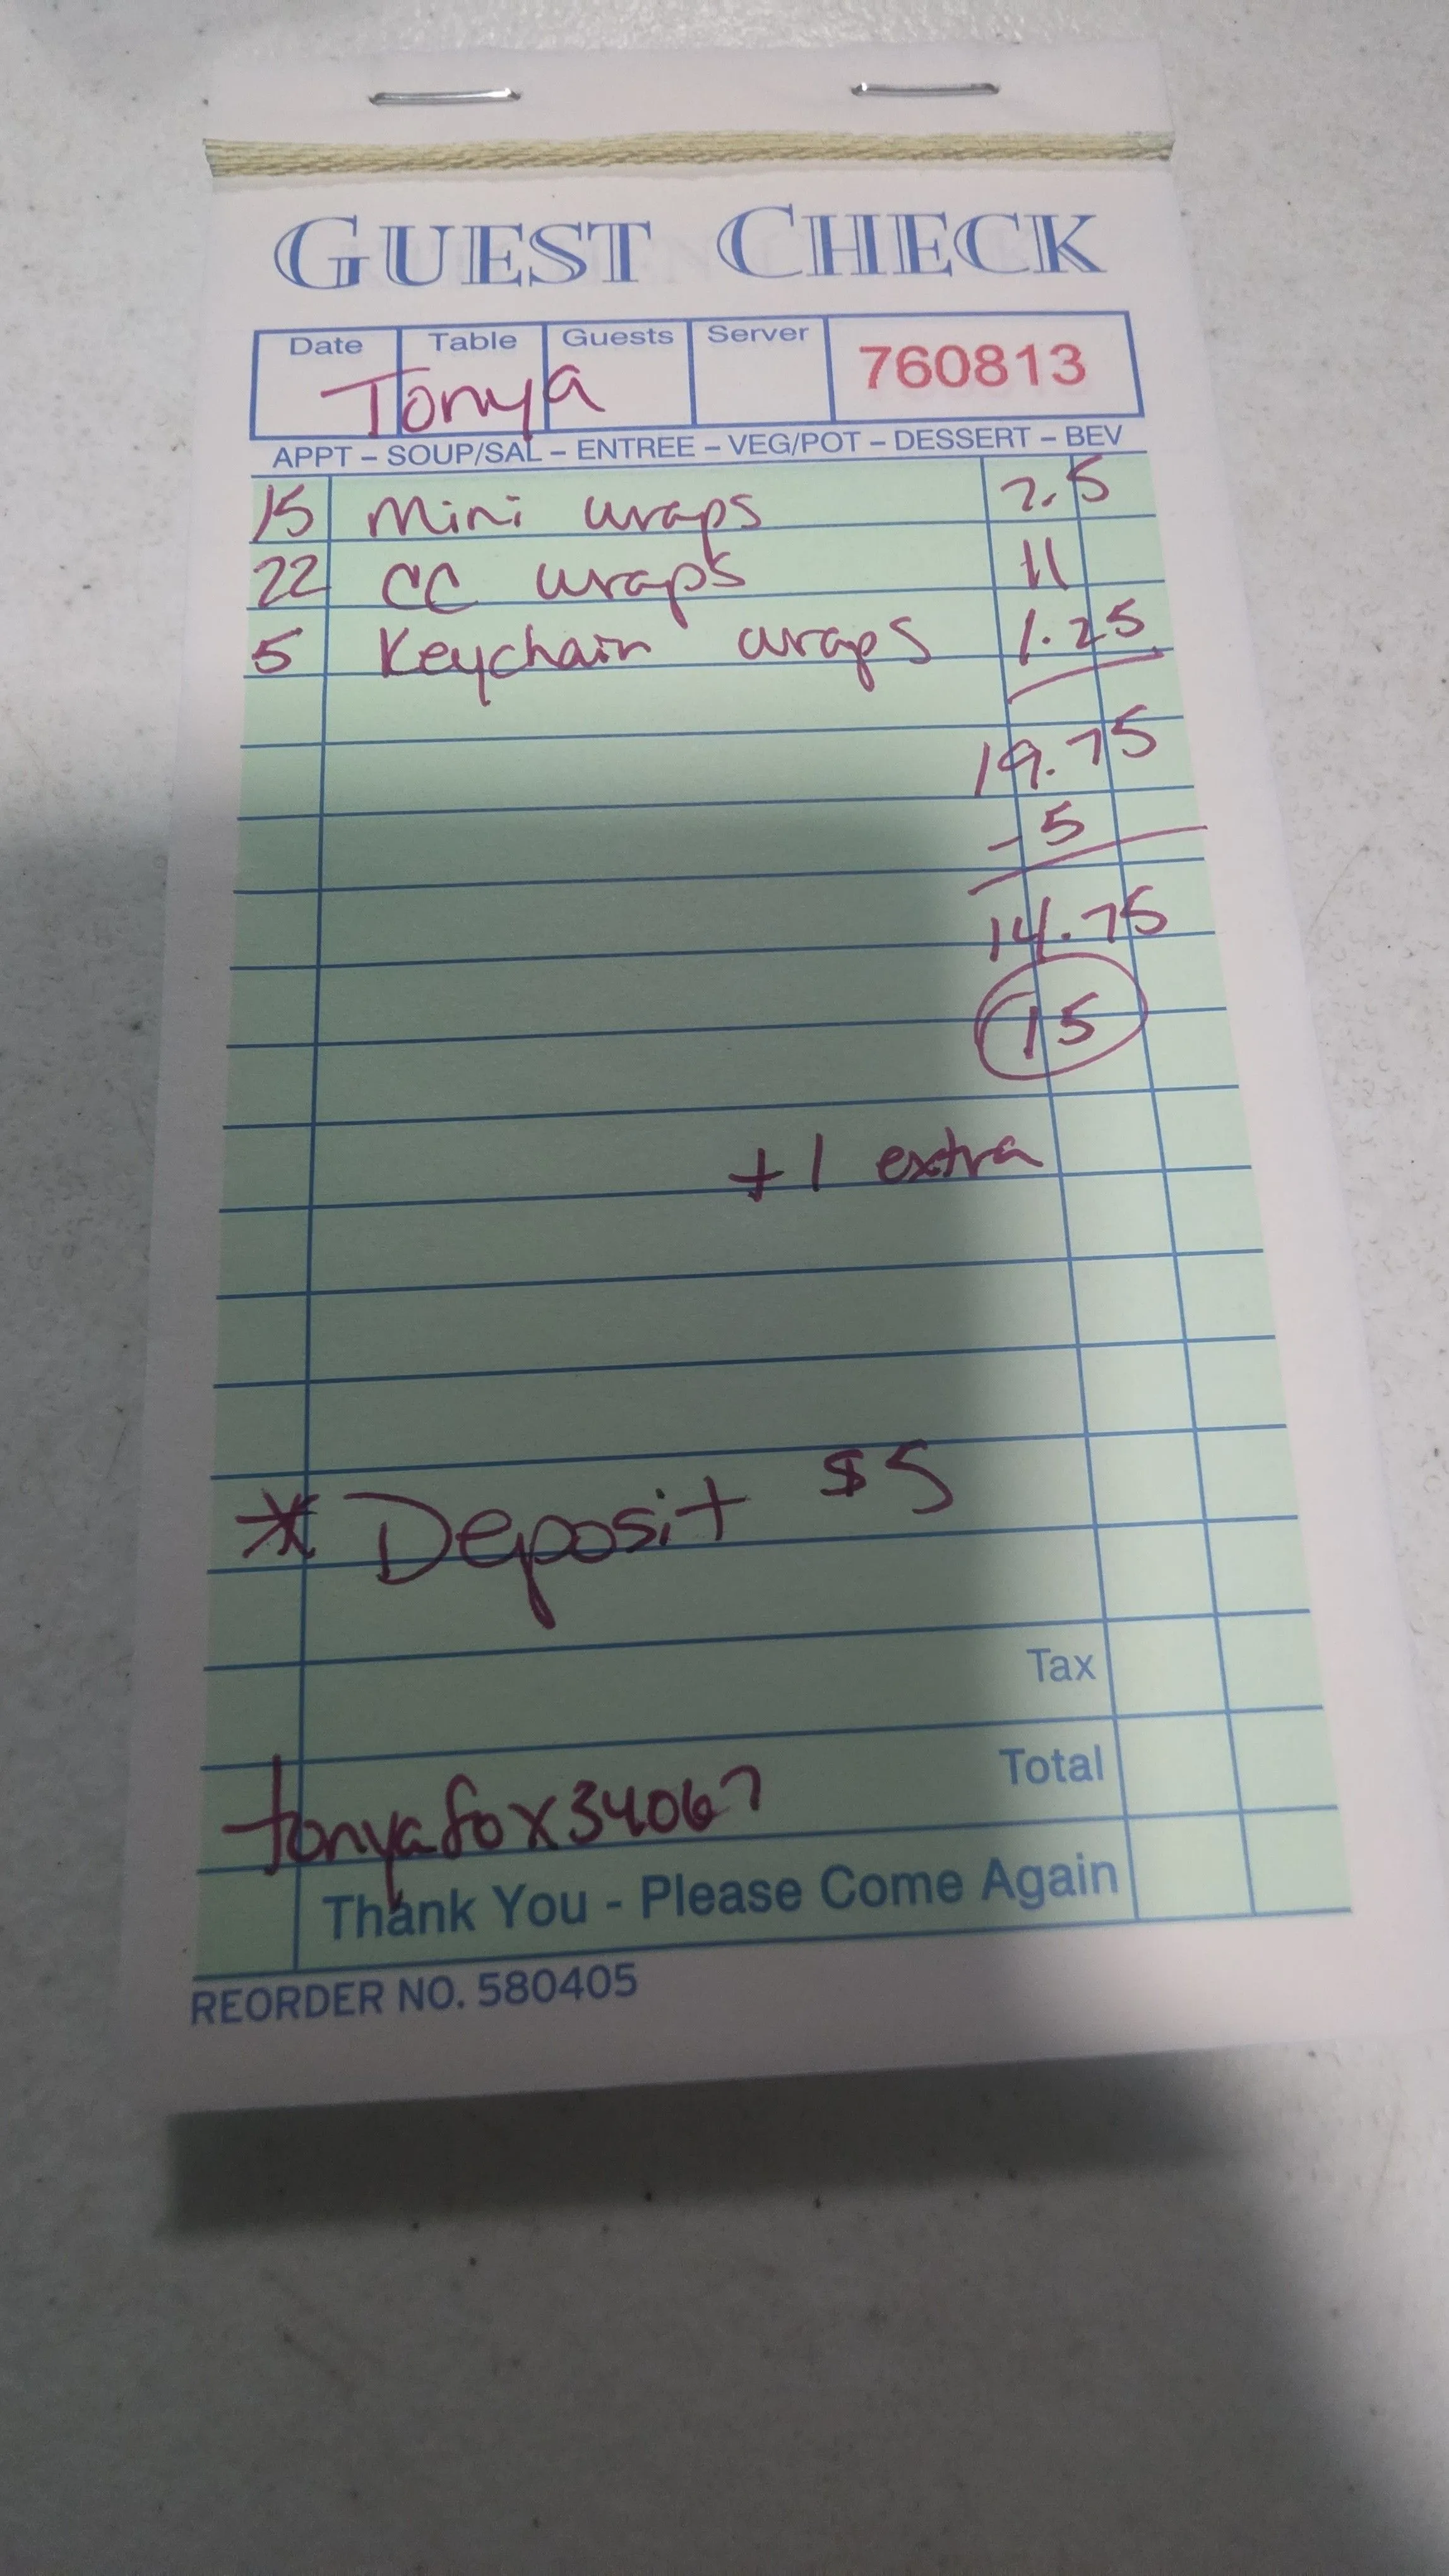 GUEST CHECK
Date Table Guests Server 760813
Tonya
APPT – SOUP/SAL – ENTREE – VEG/POT – DESSERT – BEV
15 Mini wraps 7.5
22 CC wraps 11
5 Keychain wraps 1.25
19.75
- 5
14.75
15
+1 extra
* Deposit $5
Tax
Total
tonyafox34067
Thank You - Please Come Again
REORDER NO. 580405